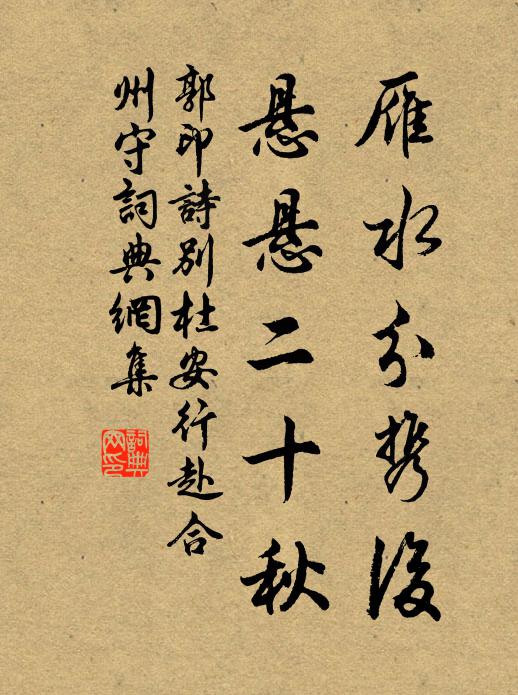 雁水分携後
悬悬二十秋
郭印詩别杜安行赴合
州守詞典網集
詞典網印